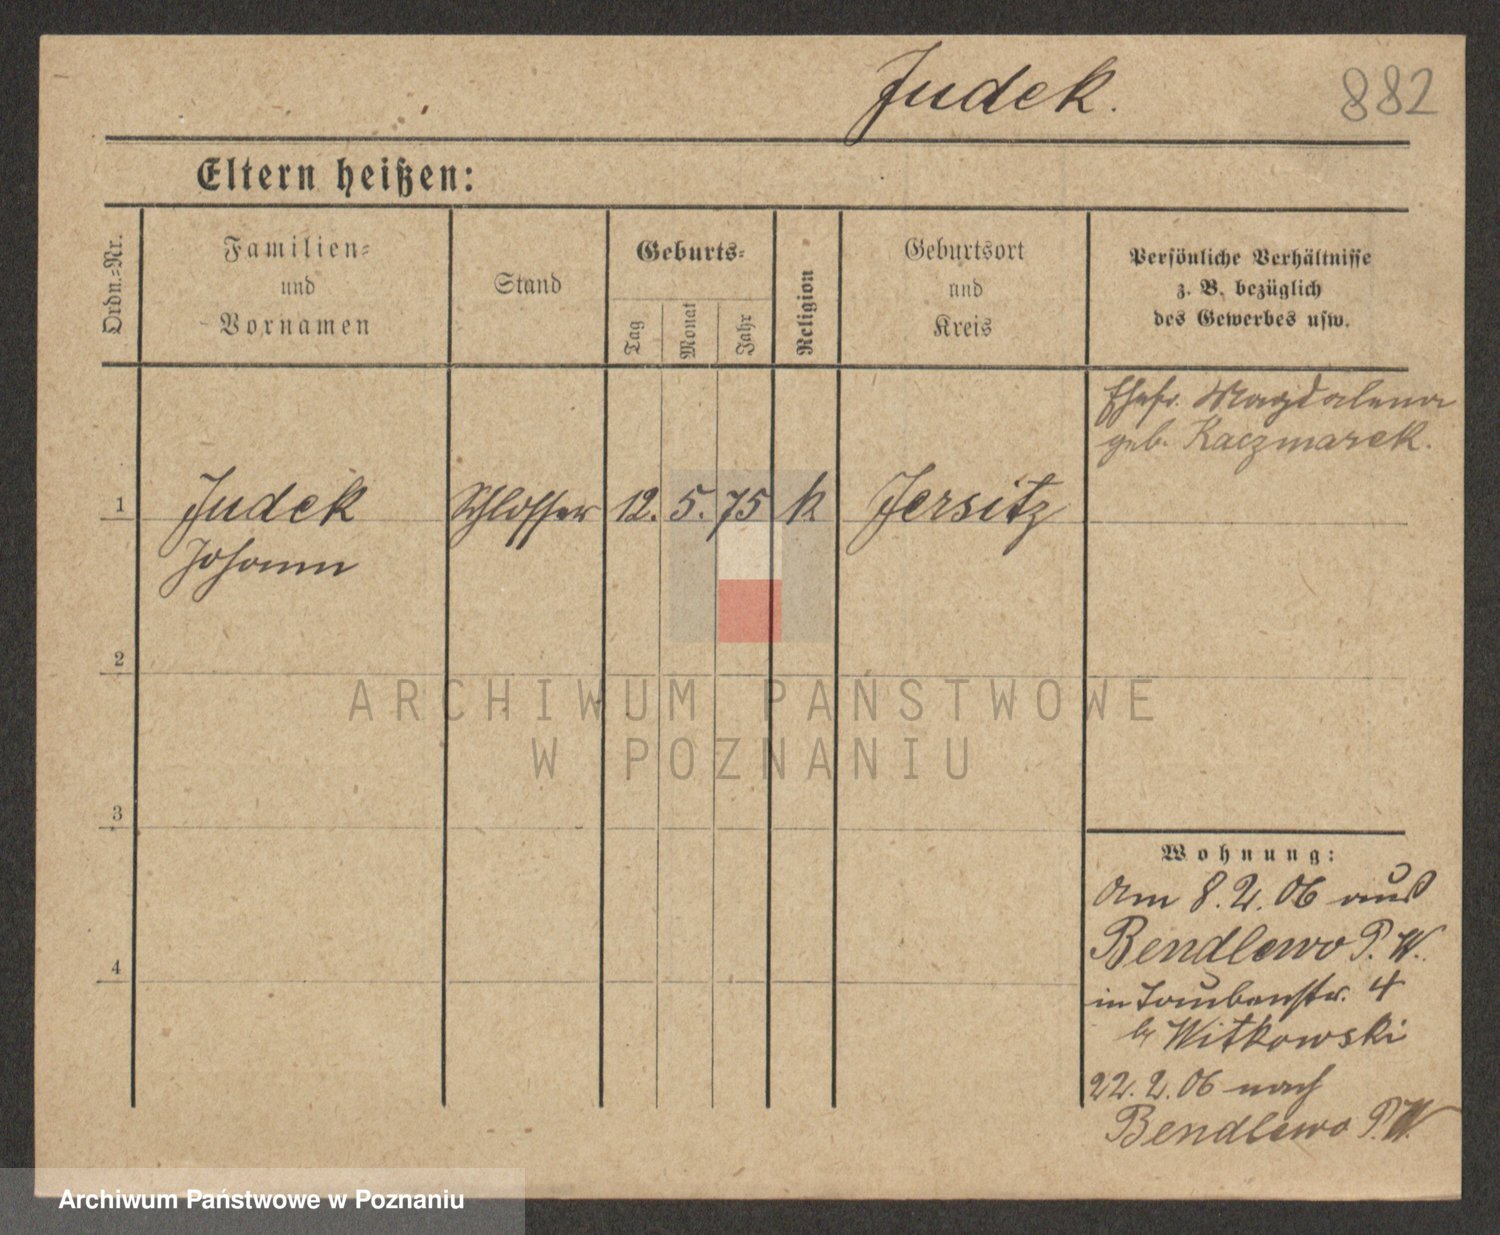 Judek.
882
Eltern heißen:
Ordn.=Nr.
Familien=
und
Vornamen
Stand
Geburts=
Tag
Monat
Jahr
Religion
Geburtsort
und
Kreis
Persönliche Verhältnisse
z. B. bezüglich
des Gewerbes usw.
Ehefr. Magdalena
geb. Kaczmarek.
1 Judek Schlosser 12. 5. 75 k. Jersitz
Johann
2
3
4
Wohnung:
Am 8.2.06 aus
Bendlewo P. W.
in Taubenstr. 4
b/ Witkowski
22.2.06 nach
Bendlewo P.W.
ARCHIWUM PAŃSTWOWE
W POZNANIU
Archiwum Państwowe w Poznaniu